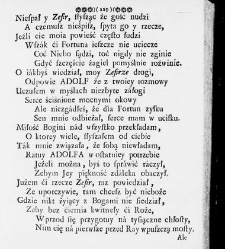 ( 225 )
Nieſpał y Zefir, ſłyſząc że gość nudzi
A czemuſz nieśpiſz, ſpyta go y rzecze,
Jeżli cie moia powieść częſto ſudzi
Wſzak ci Fortuna ieſzcze nie uciecze
Coć Niebo ſądzi, toć nigdy nie zginie
Gdyż ſzczęście żagiel pomyślnie rozwinie.
O iákbyś wiedział, moy Zefirze drogi,
Odpowie ADOLF że z twoiey rozmowy
Uczułem w myślach niezbyte załogi
Serce ściśnione mocnymi okowy
Ale niezgádłeś, że dla Fortun zyſku
Sen mnie odbieżał, ſerce mam w uciſku.
Miłość Bogini nád wſzyſtko przekłádam,
O ktorey wiele, ſłyſzałem od ciebie
Ták mnie związała, że ſobą niewładam,
Ratuy ADOLFA w oſtatniey potrzebie
Jeżeli można, byś to ſprawić raczył,
Zebym Jey piękność zdáleka obaczył.
Jużem ći rzecze Zefir, raz powiedział,
Ze uporczywie, tam chceſz być niebożę
Gdzie nikt żyiący z Bogami nie ſiedział,
Zeby bez ciernia kwitneły ći Roże,
W przod ſię przygotuy ná tyſiączne chłoſty,
Nim cię ná pierwſze przed Ray wpuſzczą moſty.
Ale